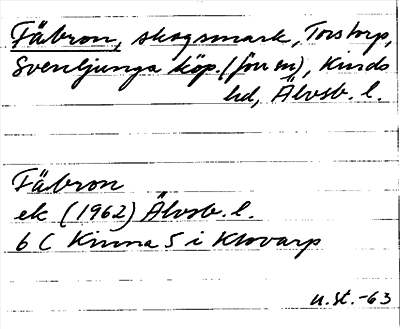 Fäbron, skogsmark, Torstorp,
Svenljunga köp. (förs m), Kinds
hd, Älvsb. l.
Fäbron
ek (1962) Älvsb. l.
6 C Kinna S i Klovarp
n.st.-63